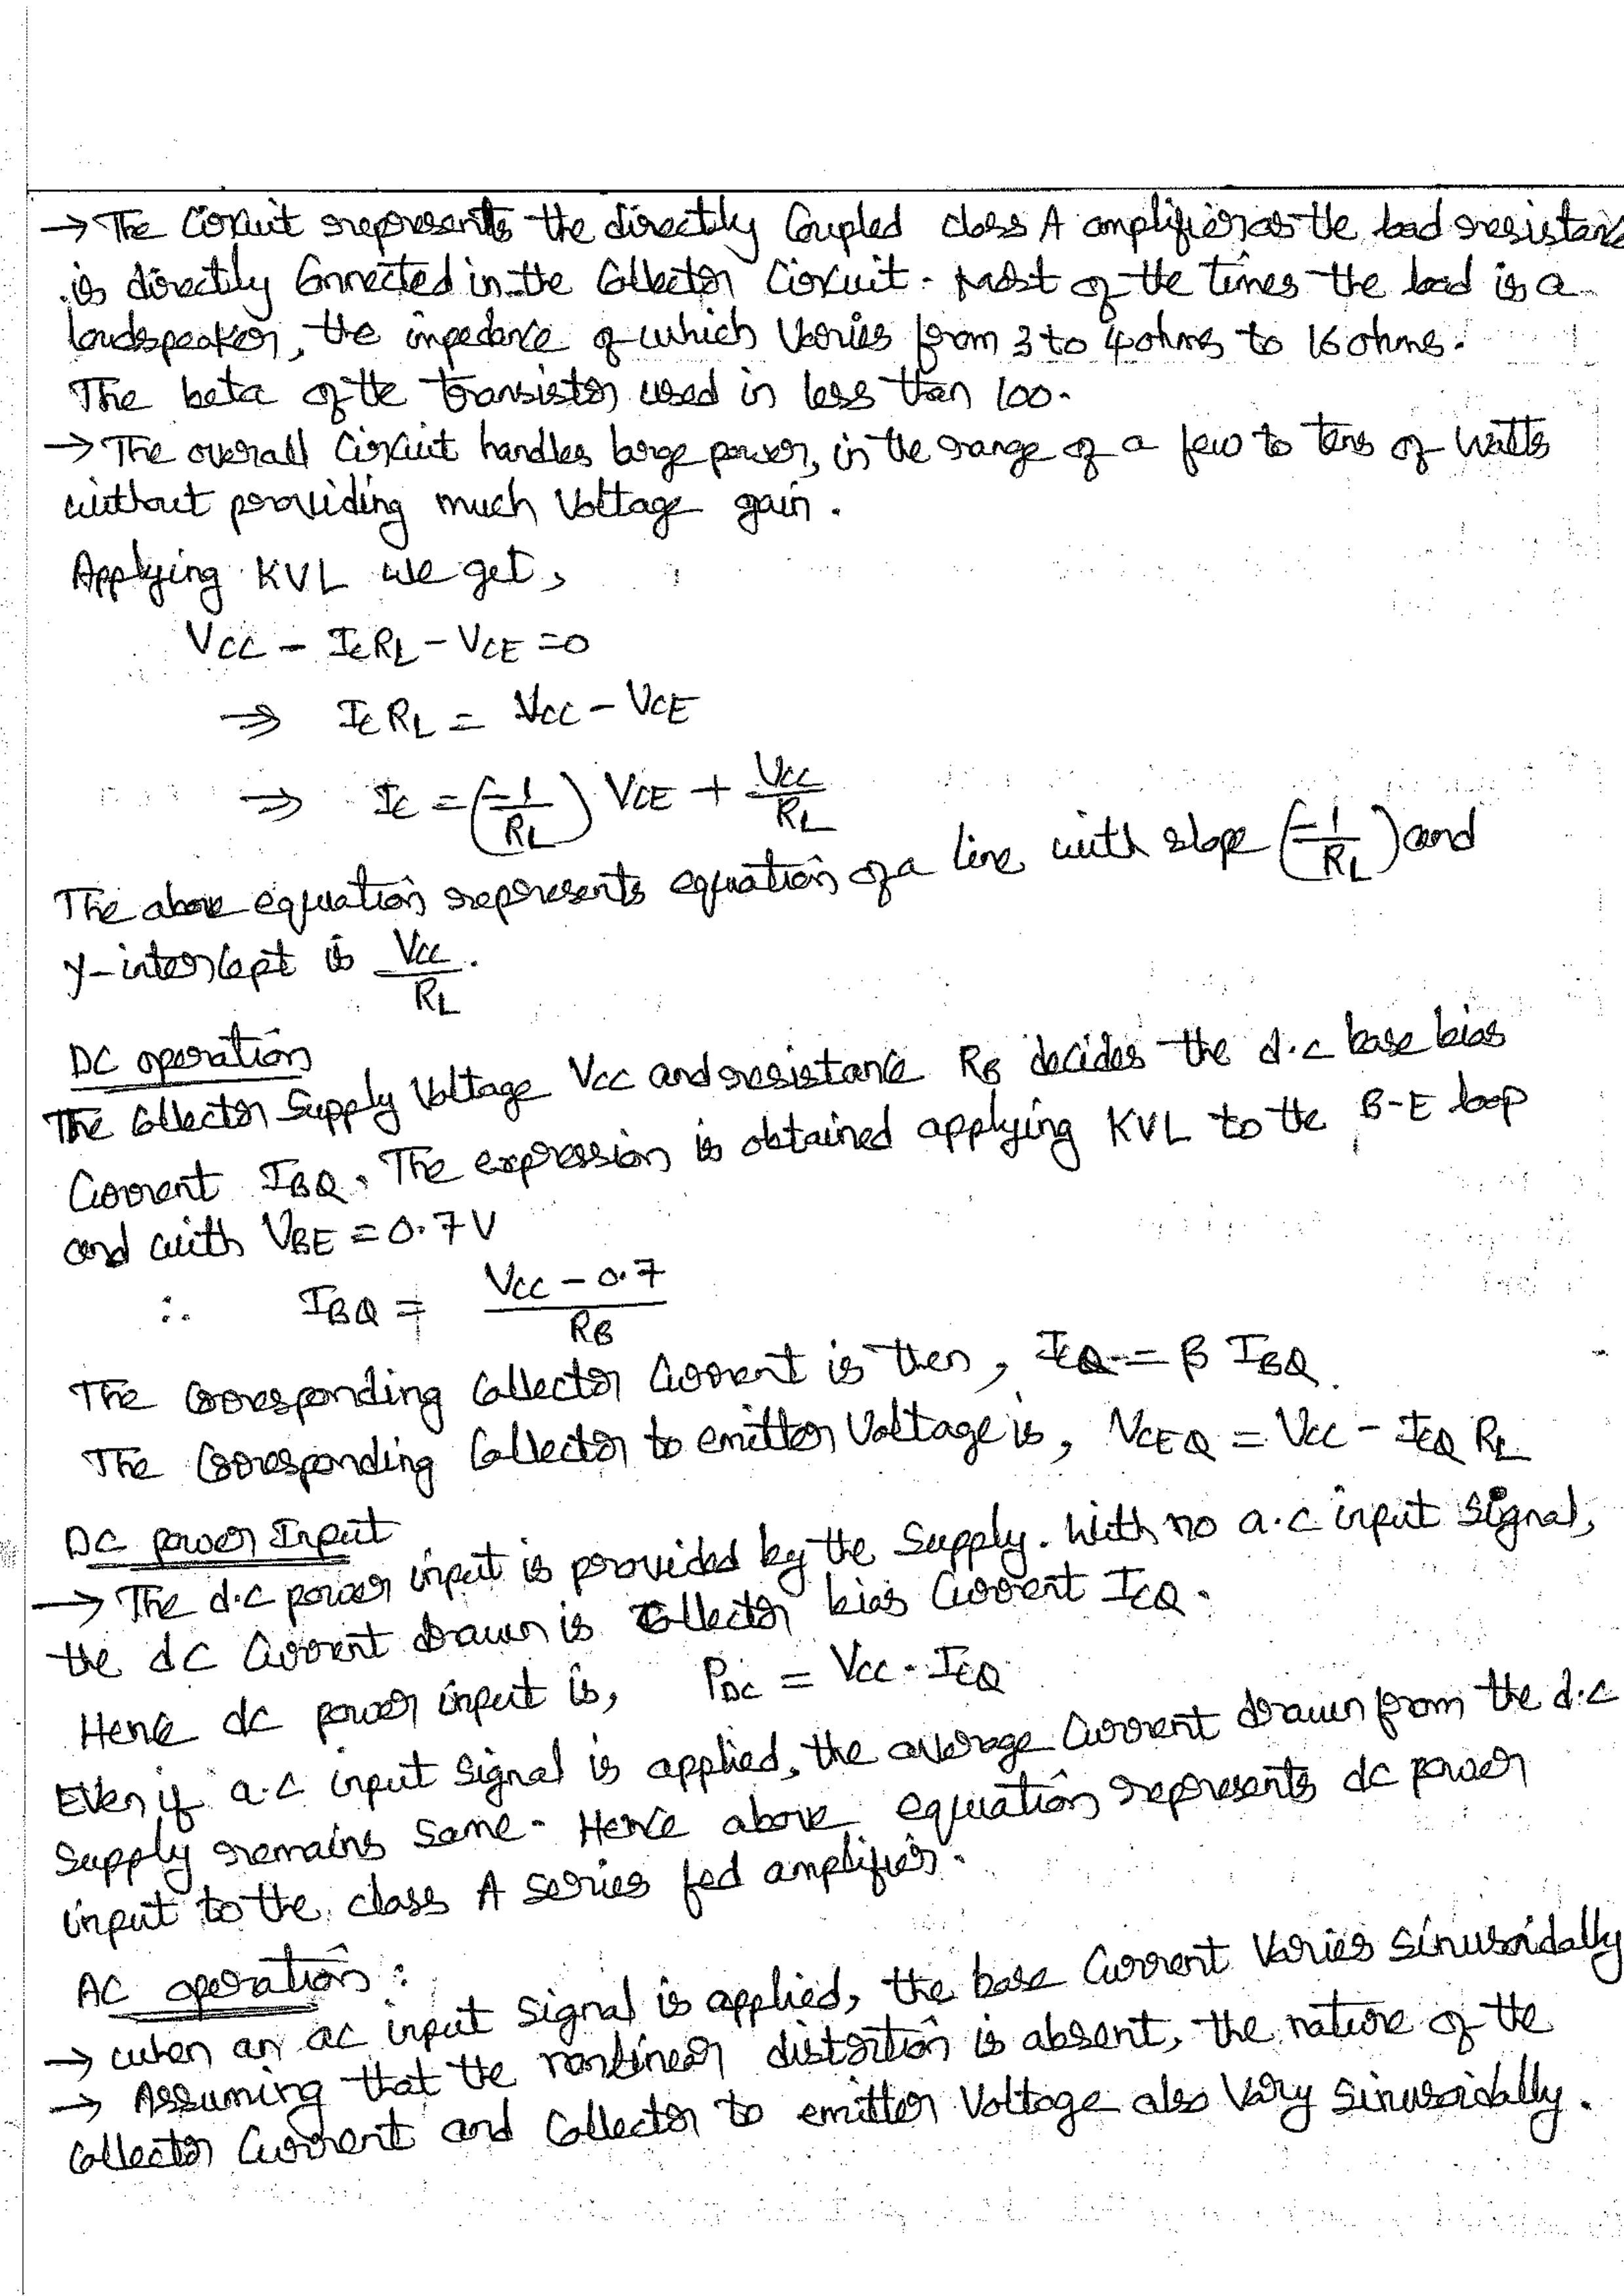 → The Circuit represents the directly Coupled class A amplifier as the load resistance
is directly Connected in the Collector Circuit. Most of the times the load is a
loudspeaker, the impedance of which Varies from 3 to 4 ohms to 16 ohms.
The beta of the transistor used in less than 100.
→ The overall Circuit handles large power, in the range of a few to tens of Watts
without providing much Voltage gain.
Applying KVL we get,
VCC - ICRL - VCE = 0
⇒ IC RL = VCC - VCE
⇒ IC = (-1/RL) VCE + VCC/RL
The above equation represents equation of a line with slope (-1/RL) and
y-intercept is VCC/RL.
DC operation
The Collector Supply Voltage VCC and resistance RB decides the d.c base bias
Current IBQ. The expression is obtained applying KVL to the B-E loop
and with VBE = 0.7V
∴ IBQ = (VCC - 0.7)/RB
The Corresponding Collector Current is then, ICQ = β IBQ.
The Corresponding Collector to emitter Voltage is, VCEQ = VCC - ICQ RL
DC power Input
→ The d.c power input is provided by the Supply. With no a.c input signal,
the dC Current drawn is Collector bias Current ICQ.
Hence dc power input is, PDC = VCC . ICQ
Even if a.c input signal is applied, the average Current drawn from the d.c
Supply remains same. Hence above equation represents dc power
input to the class A series fed amplifier.
AC operation :
→ when an ac input signal is applied, the base Current Varies sinusoidally
→ Assuming that the nonlinear distortion is absent, the nature of the
Collector Current and Collector to emitter Voltage also Vary sinusoidally.